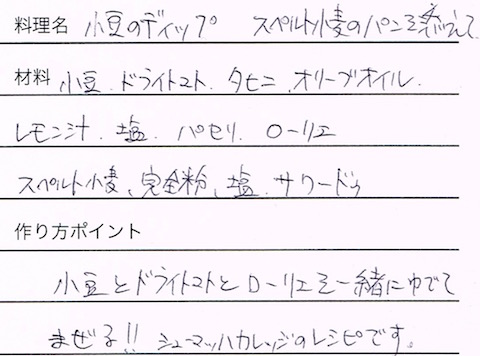 料理名 小豆のディップ スペルト小麦のパンを添えて
材料 小豆、ドライトマト、タヒニ、オリーブオイル、
レモン汁、塩、パセリ、ローリエ
スペルト小麦、完全粉、塩、サワードゥ
作り方ポイント
小豆とドライトマトとローリエを一緒にゆでて
まぜる!! シューマッハカレッジのレシピです。